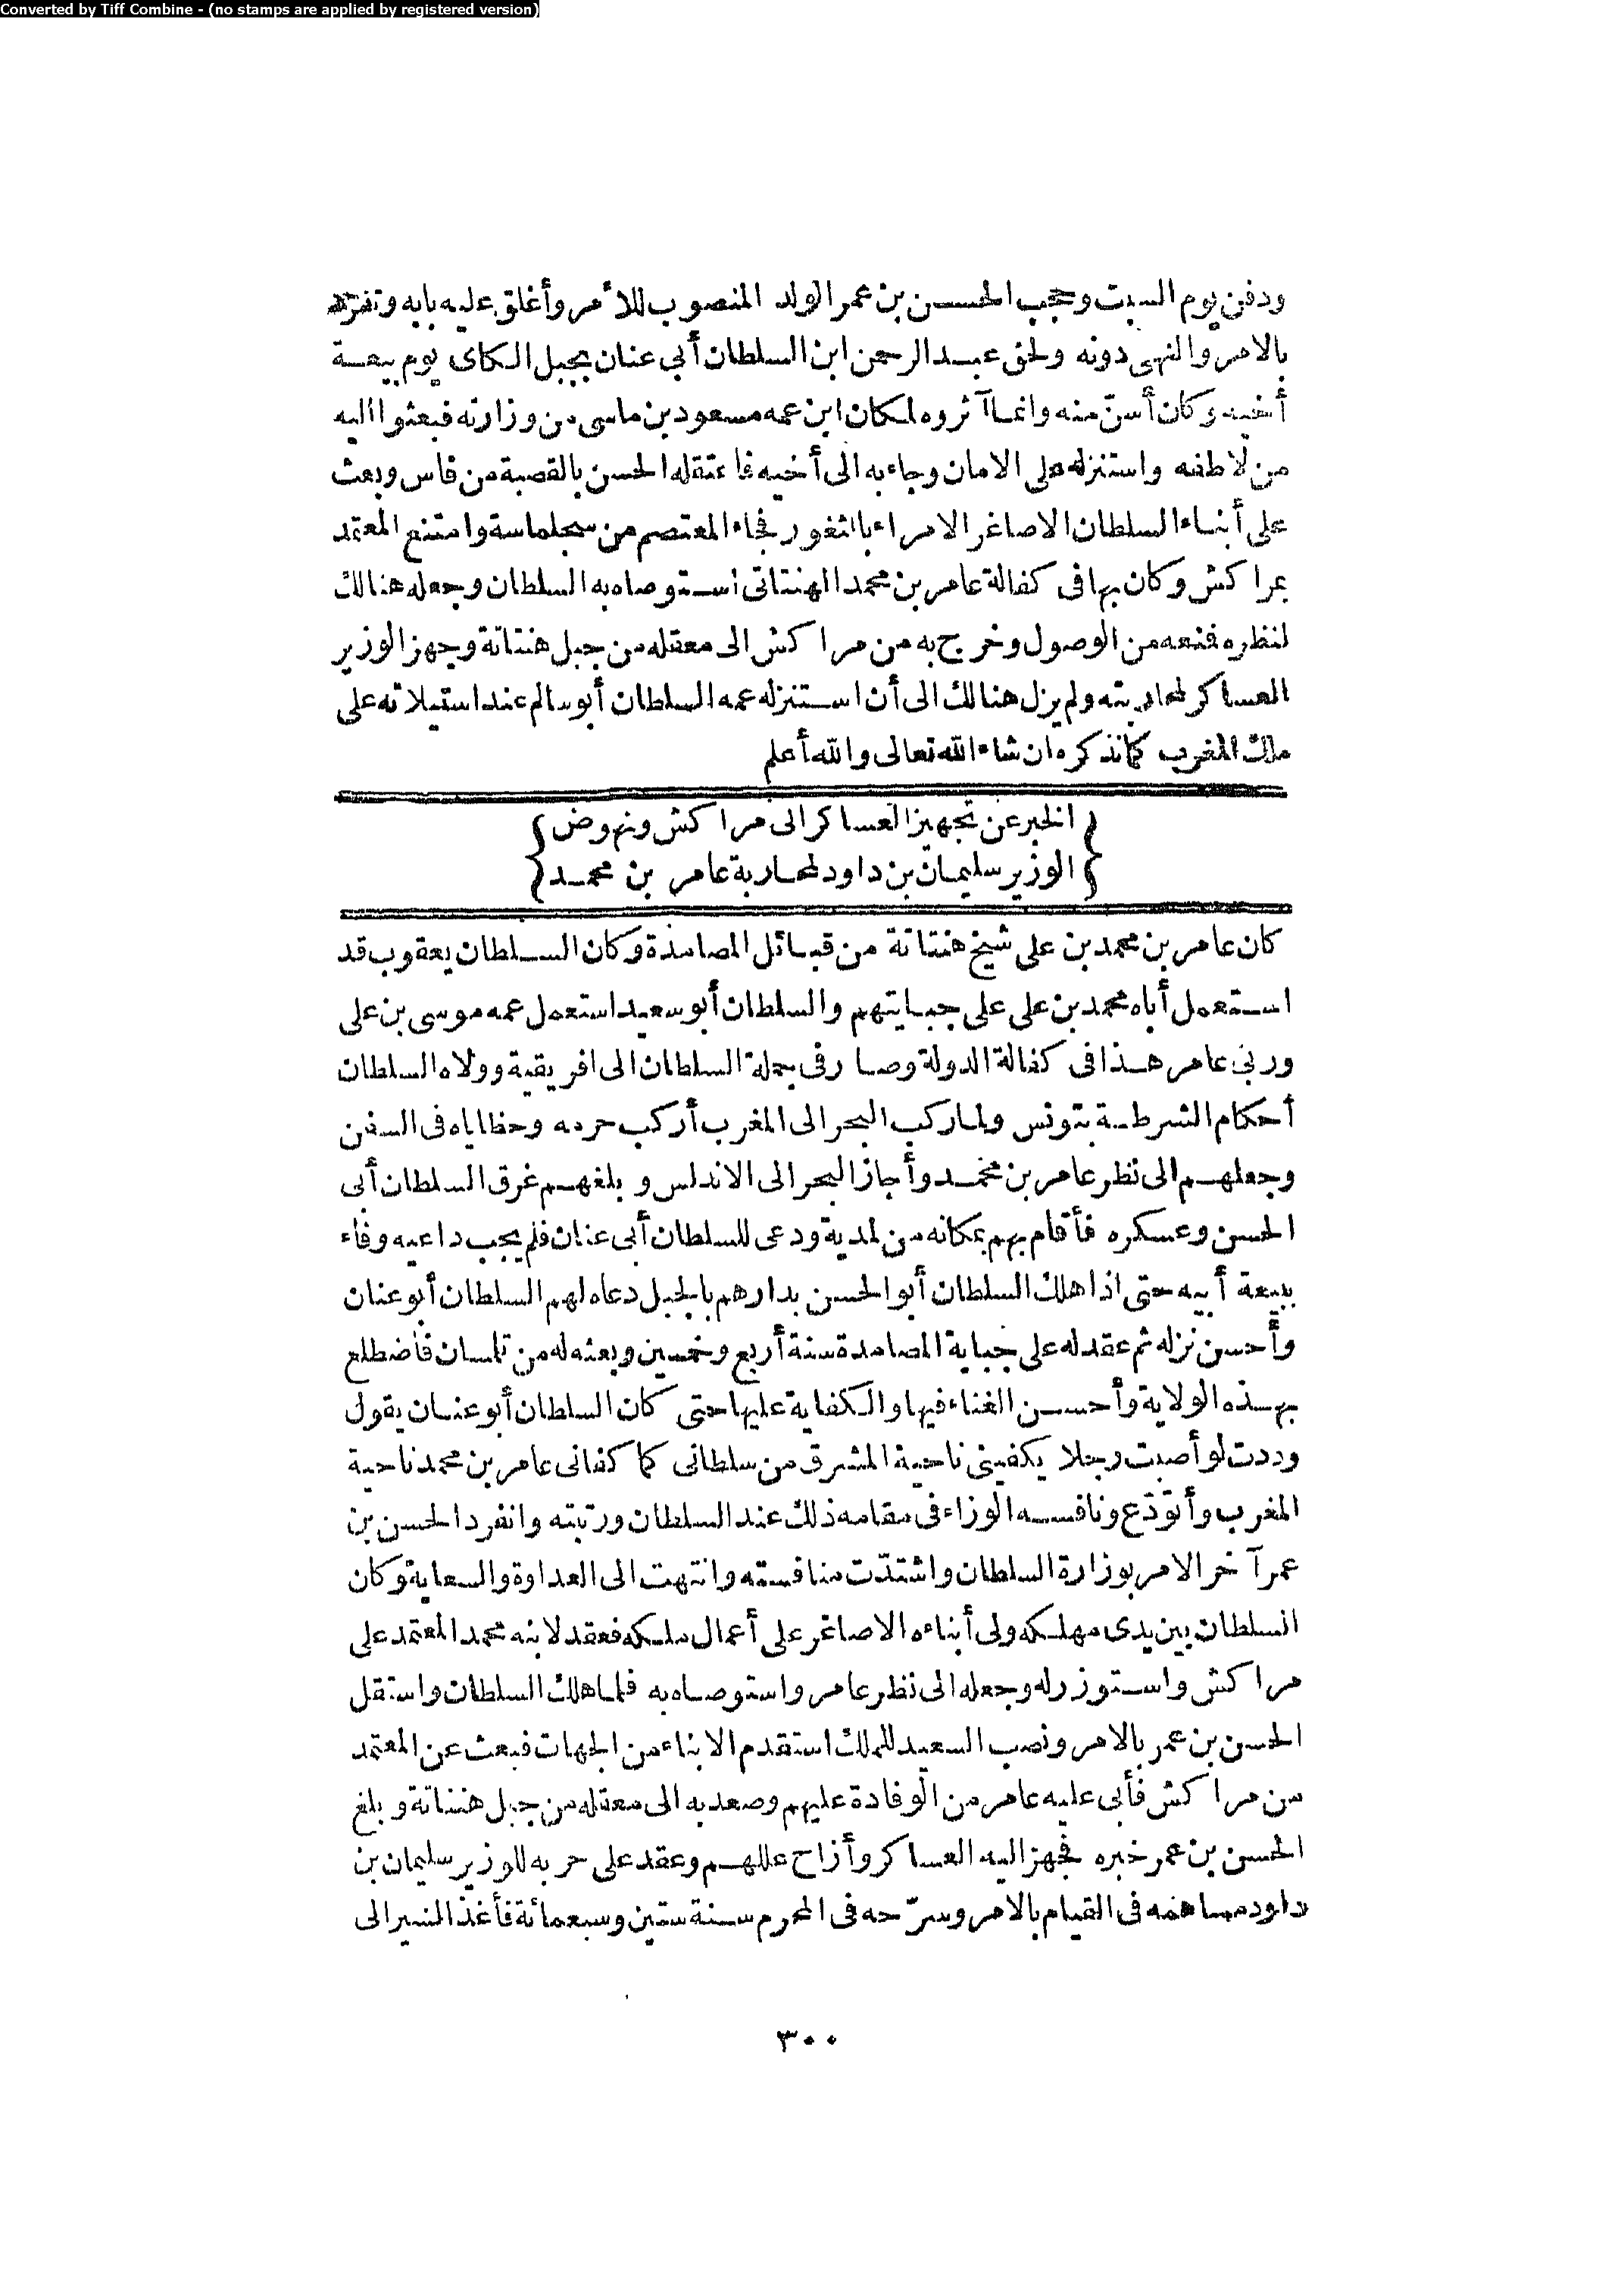 Converted by Tiff Combine - (no stamps are applied by registered version)
ودفن يوم السبت وحجب الحسن بن عمر الولد المنصوب للأمر وأغلق عليه بابه وتفرد
بالامر والنهى دونه ولحق عبد الرحمن ابن السلطان أبي عنان بجبل الكاى يوم بيعة
أخيه وكان أسنّ منه وانما آثروه لمكان ابن عمه مسعود بن ماسى من وزارته فبعثوا اليه
من لاطفه واستنزله على الامان وجاء به الى أخيه فاعتقله الحسن بالقصبة من فاس وبعث
على أبناء السلطان الاصاغر الامراء بالثغور فجاء المعتصم من سجلماسة وامتنع المعتمد
بمراكش وكان بها فى كفالة عامر بن محمد الهنتاتى استوصاه به السلطان وجعله هنالك
لنظره فمنعه من الوصول وخرج به من مراكش الى معقله من جبل هنتاتة وجهز الوزير
العساكر لمحاربته ولم يزل هنالك الى أن استنزله عمه السلطان أبو سالم عند استيلائه على
ملك المغرب كما نذكره ان شاء الله تعالى والله أعلم
{ الخبر عن تجهيز العساكر الى مراكش ونهوض }
{ الوزير سليمان بن داود لمحاربة عامر بن محمد }
كان عامر بن محمد بن على شيخ هنتاتة من قبائل المصامدة وكان السلطان يعقوب قد
استعمل أباه محمد بن على على جبايتهم والسلطان أبو سعيد استعمل عمه موسى بن على
وربى عامر هذا فى كفالة الدولة وصار فى جملة السلطان الى افريقية وولاه السلطان
أحكام الشرطة بتونس ولما ركب البحر الى المغرب أركب حرمه وحظاياه فى السفن
وجعلهم الى نظر عامر بن محمد وأجاز البحر الى الاندلس وبلغهم غرق السلطان أبى
الحسن وعسكره فأقام بهم بمكانه من لمدية ودعى للسلطان أبى عنان فلم يجب داعيه وفاء
ببيعة أبيه حتى اذا هلك السلطان أبو الحسن بدارهم بالجبل دعاه لهم السلطان أبو عنان
وأحسن نزله ثم عقد له على جباية المصامدة سنة أربع وخمسين وبعثه له من تلمسان فأضطلع
بهذه الولاية وأحسن الغناء فيها والكفاية عليها حتى كان السلطان أبو عنان يقول
وددت لو أصبت رجلا يكفينى ناحية المشرق من سلطانى كما كفانى عامر بن محمد ناحية
المغرب وأتودّع ونافسه الوزاء فى مقامه ذلك عند السلطان ورتبته وانفرد الحسن بن
عمر آخر الامر بوزارة السلطان واشتدّت منافسته وانتهت الى العداوة والسعاية وكان
السلطان بين يدى مهلكه ولى أبناءه الاصاغر على أعمال ملكه فعقد لابنه محمد المعتمد على
مراكش واستوزر له وجعله الى نظر عامر واستوصاه به فلما هلك السلطان واستقل
الحسن بن عمر بالامر ونصب السعيد للملك استقدم الابناء من الجهات فبعث عن المعتمد
من مراكش فأبى عليه عامر من الوفادة عليهم وصعد به الى معقله من جبل هنتاتة وبلغ
الحسن بن عمر خبره فجهز اليه العساكر وأزاح عللهم وعقد على حربه للوزير سليمان بن
داود مساهمه فى القيام بالامر وسرّحه فى المحرم سنة ستين وسبعمائة فأغذ السير الى
٣٠٠